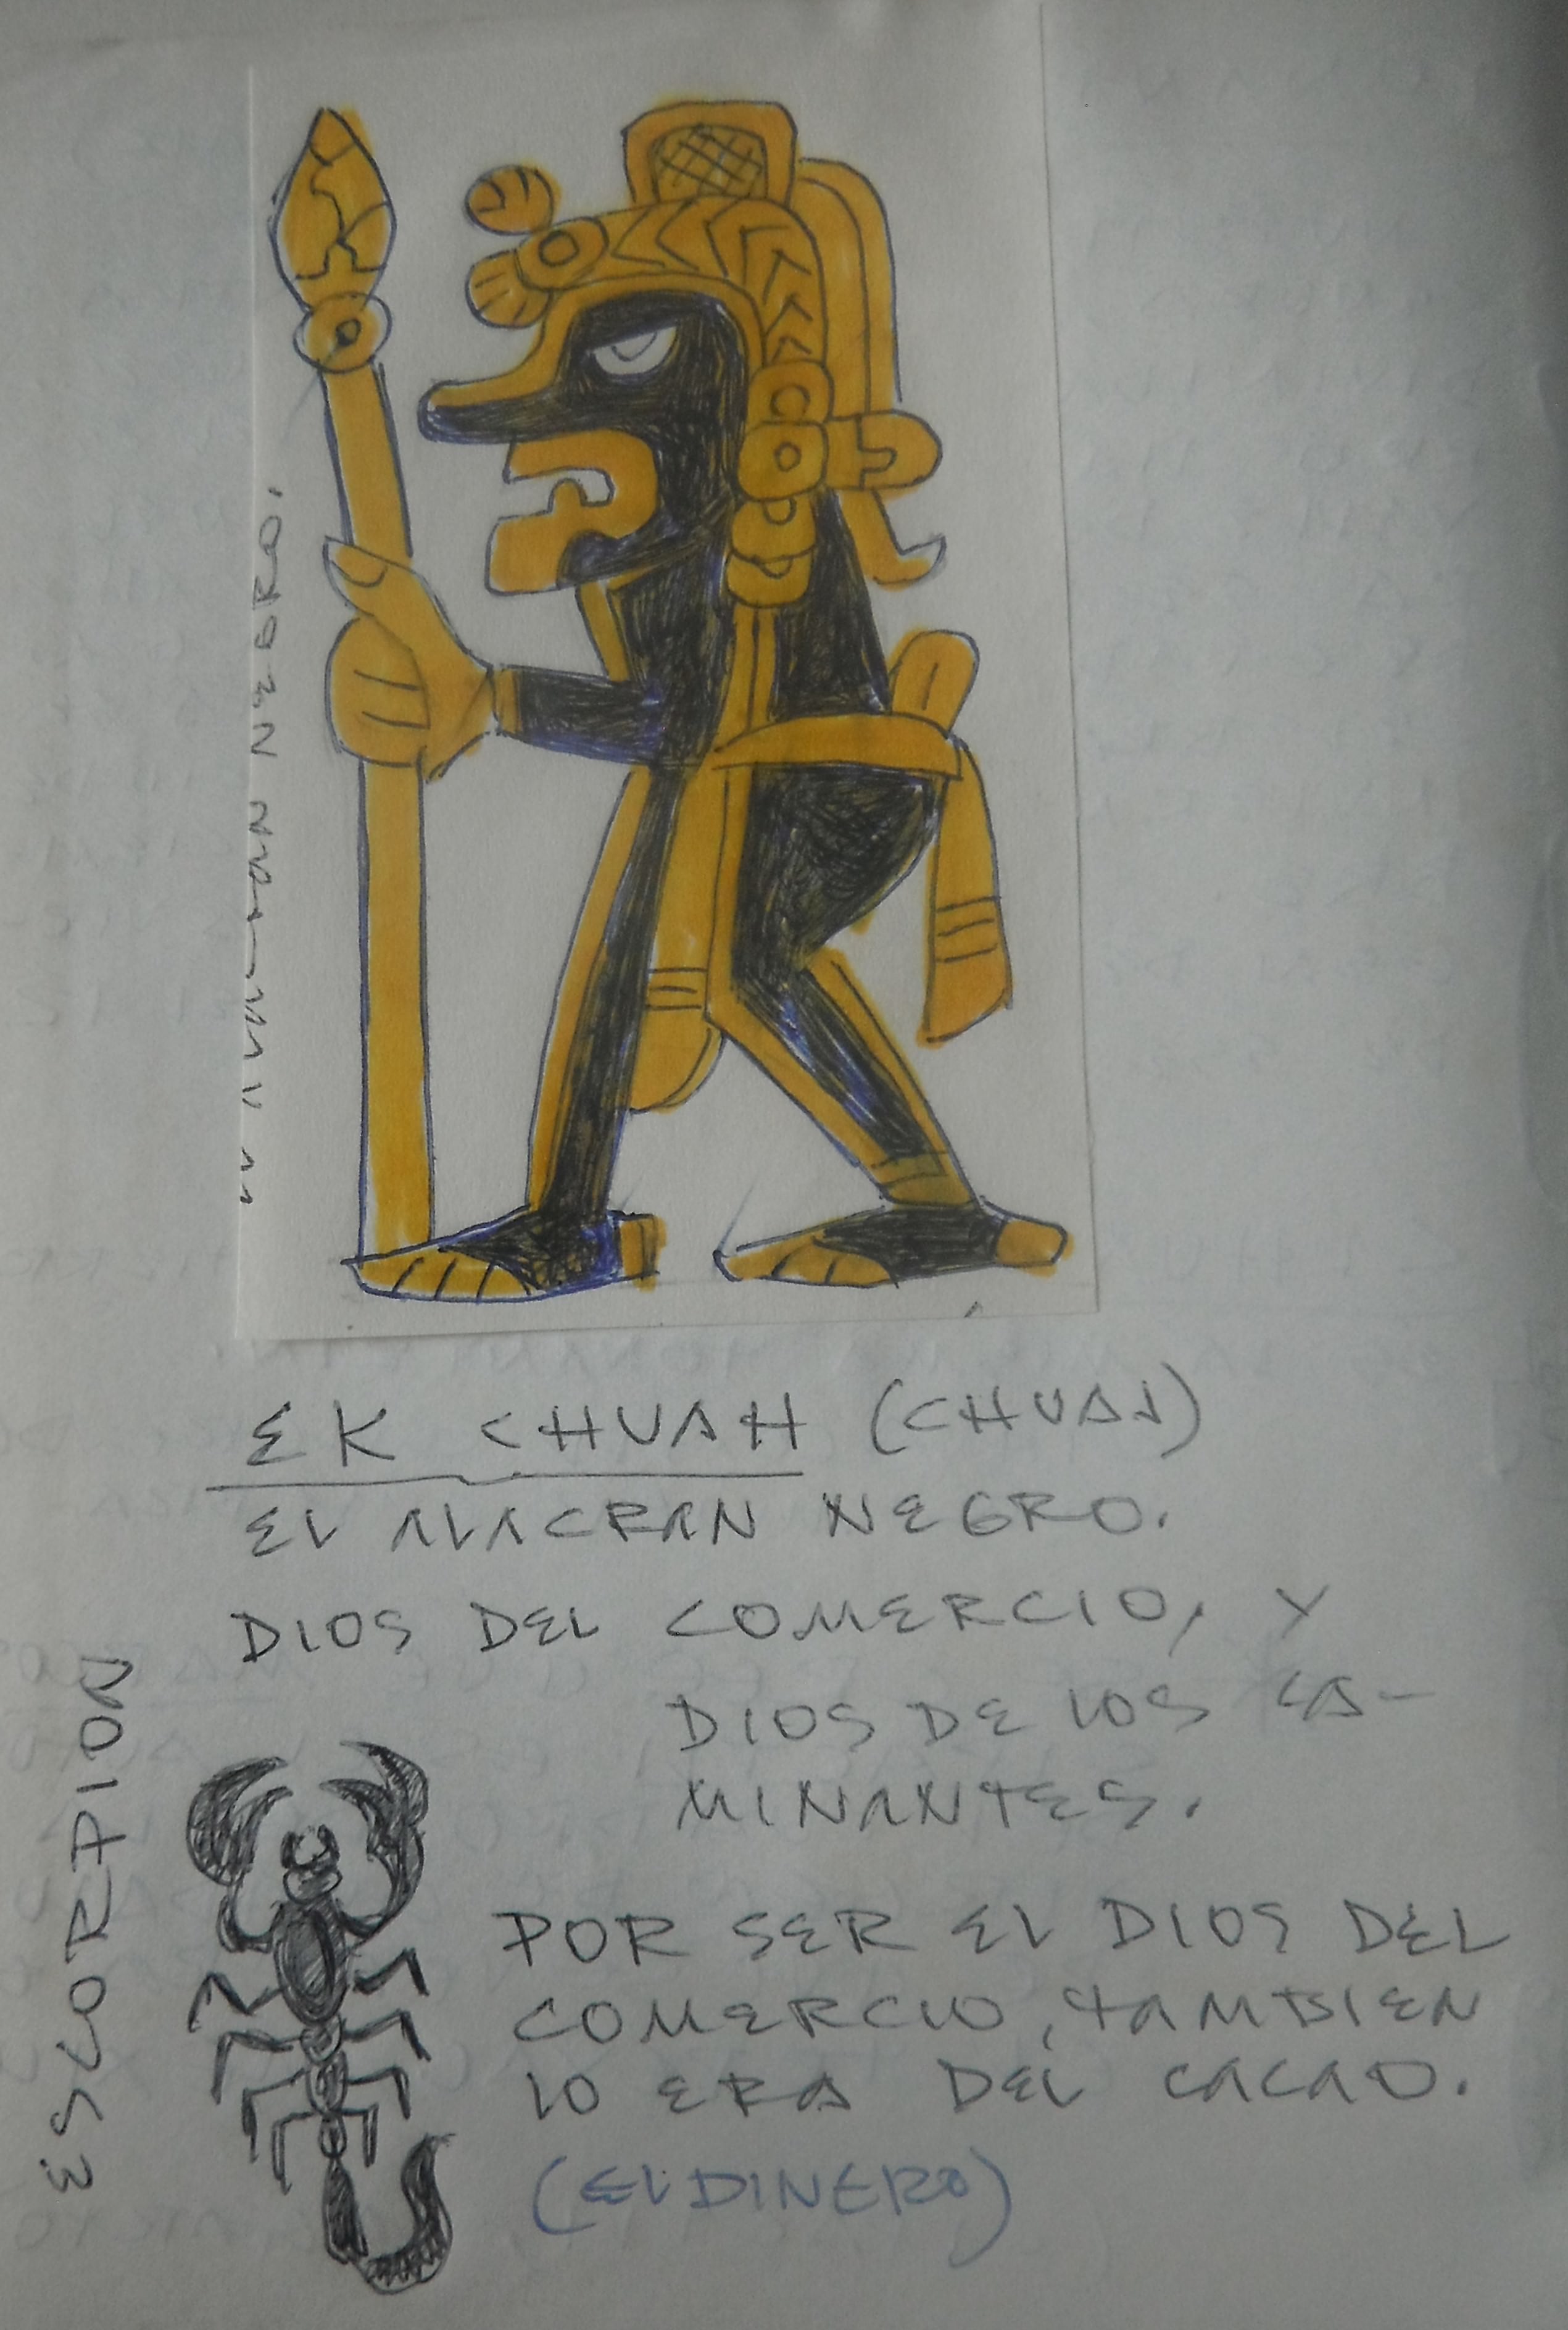 EK CHUAH (CHUAJ)
EL ALACRAN NEGRO.
DIOS DEL COMERCIO, Y
DIOS DE LOS CA-
MINANTES.
ESCORPION
POR SER EL DIOS DEL
COMERCIO, TAMBIEN
LO ERA DEL CACAO.
(EL DINERO)